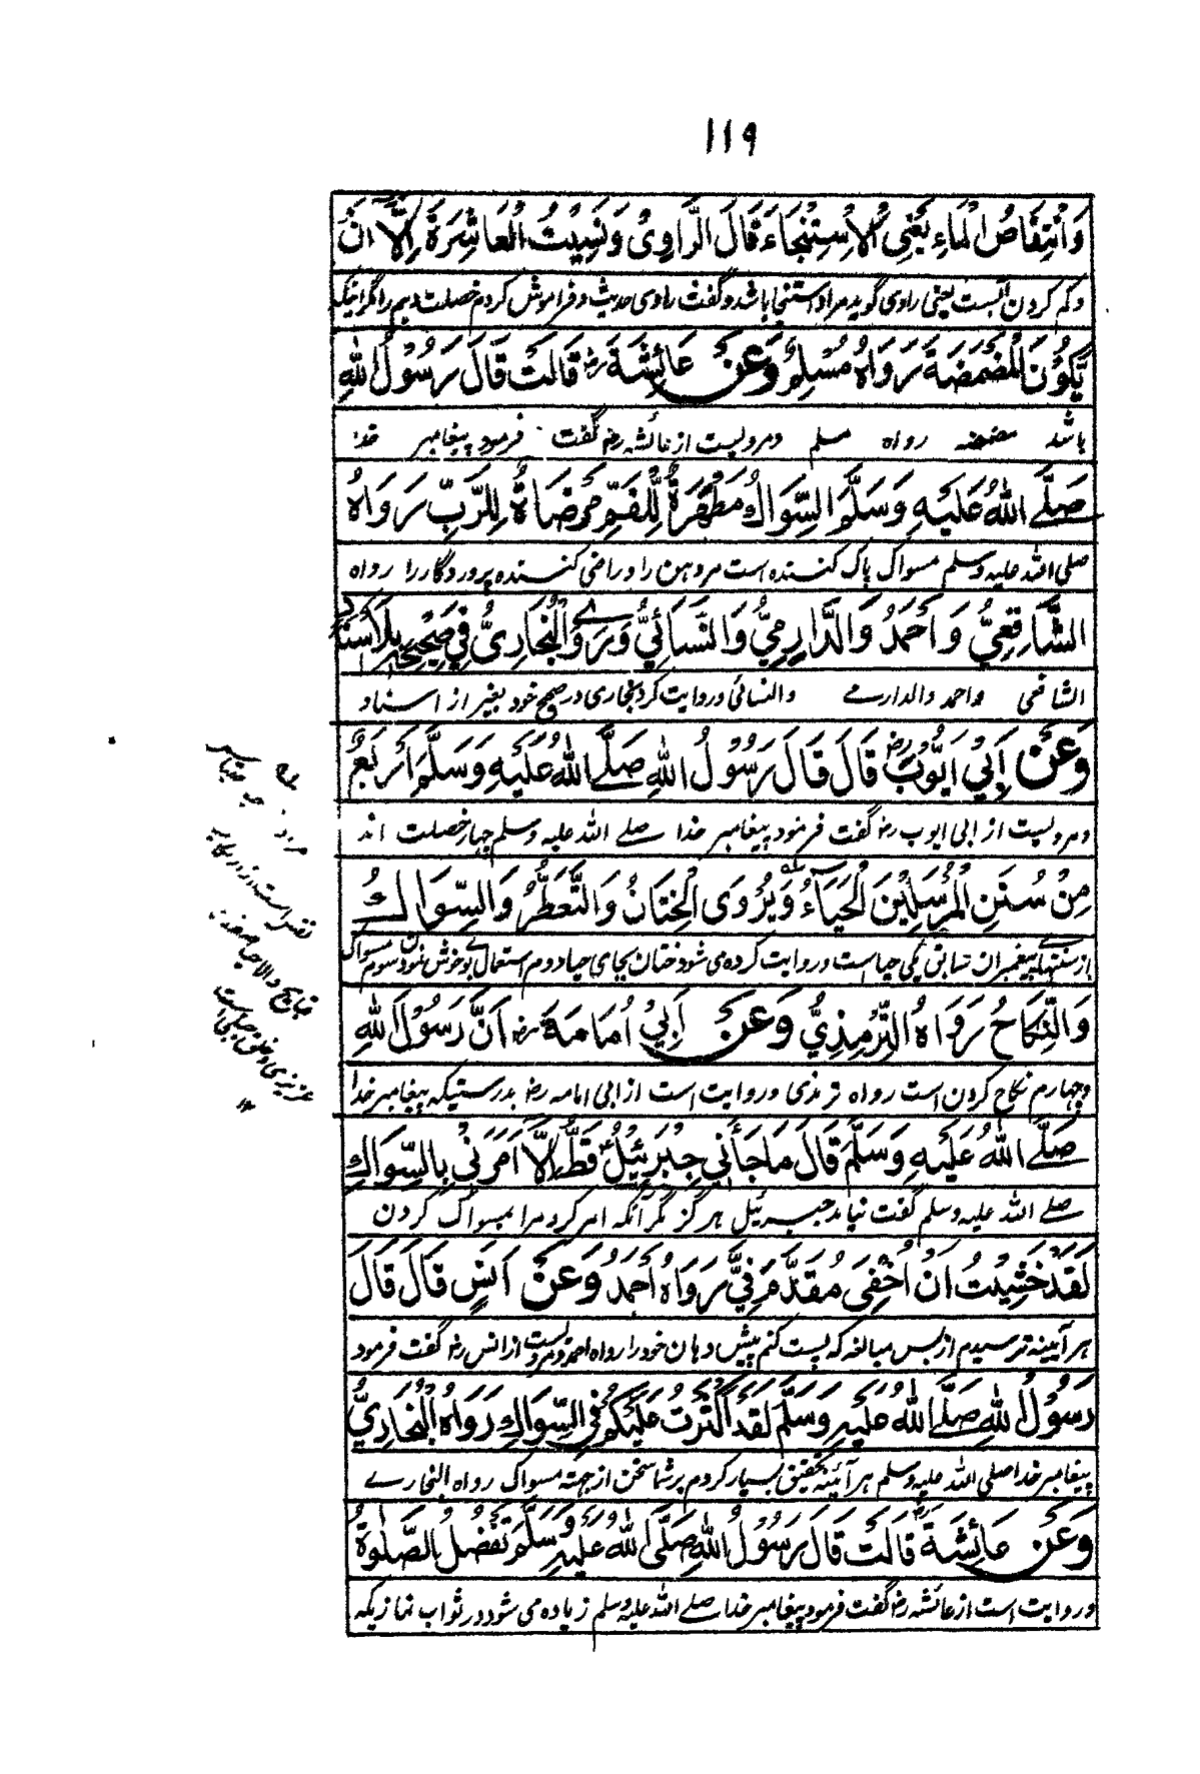 ۱۱۹
وَانْتِقَاصُ الْمَاءِ يَعْنِي الْاِسْتِنْجَاءَ قَالَ الرَّاوِىْ وَنَسِيْتُ الْعَاشِرَةَ اِلَّا اَنْ
وکم کردن آبست یعنی راوی گوید مراد استنجا باشد و گفت راوی حدیث و فراموش کردم خصلت دهم را مگر اینکه
يَّكُوْنَ الْمَضْمَضَةَ رَوَاهُ مُسْلِمٌ وَعَنْ عَائِشَةَ رض قَالَتْ قَالَ رَسُوْلُ اللهِ
باشد مضمضه رواه مسلم ومرویست از عائشه رض گفت فرمود پیغامبر خدا
صَلَّے اللهُ عَلَيْهِ وَسَلَّمَ السِّوَاكُ مَطْهَرَةٌ لِّلْفَمِ مَرْضَاةٌ لِلرَّبِّ رَوَاهُ
صلی الله علیه وسلم مسواک پاک کننده است مردهن را و راضی کننده پروردگار را رواه
الشَّافِعِيُّ وَاَحْمَدُ وَالدَّارِمِيُّ وَالنَّسَائِيُّ وَرَوَے الْبُخَارِىُّ فِي صَحِيْحِهٖ بِلَا اِسْنَادٍ
الشافعی واحمد والدارمے والنسائی وروایت کرد بخاری در صحیح خود بغیر از اسناد
وَعَنْ اَبِيْ اَيُّوْبَ رض قَالَ قَالَ رَسُوْلُ اللهِ صَلَّے اللهُ عَلَيْهِ وَسَلَّمَ اَرْبَعٌ
ومرویست از ابی ایوب رض گفت فرمود پیغامبر خدا صلے الله علیه وسلم چهار خصلت اند
مِنْ سُنَنِ الْمُرْسَلِيْنَ الْحَيَاءُ وَيُرْوَى الْخِتَانُ وَالتَّعَطُّرُ وَالسِّوَاكُ
از سنتهاے پیغمبران سابق یکی حیاست و روایت کرده می شود ختان بجای حیا و دوم استعمال بوے خوش نمودن سوم مسواک
وَالنِّكَاحُ رَوَاهُ التِّرْمِذِيُّ وَعَنْ اَبِيْ اُمَامَةَ رض اَنَّ رَسُوْلَ اللهِ
وچهارم نکاح کردن است رواه ترمذی وروایت است از ابی امامه رض بدرستیکه پیغامبر خدا
صَلَّے اللهُ عَلَيْهِ وَسَلَّمَ قَالَ مَا جَاۤءَنِي جِبْرَئِيْلُ قَطُّ اِلَّا اَمَرَنِيْ بِالسِّوَاكِ
صلے الله علیه وسلم گفت نیامد جبرئیل هرگز مگر آنکه امر کرد مرا بمسواک کردن
لَقَدْ خَشِيْتُ اَنْ اُحْفِىَ مُقَدَّمَ فِيَّ رَوَاهُ اَحْمَدُ وَعَنْ اَنَسٍ قَالَ قَالَ
هر آیینه ترسیدم از بس مبالغه که پست کنم پیش دهان خود را رواه احمد ومرویست از انس رض گفت فرمود
رَسُوْلُ اللهِ صَلَّے اللهُ عَلَيْهِ وَسَلَّمَ لَقَدْ اَكْثَرْتُ عَلَيْكُمْ فِي السِّوَاكِ رَوَاهُ الْبُخَارِيُّ
پیغامبر خدا صلی الله علیه وسلم هر آئینه تحقیق بسیار کردم بر شما سخن از جهته مسواک رواه البخارے
وَعَنْ عَائِشَةَ رض قَالَتْ قَالَ رَسُوْلُ اللهِ صَلَّى اللهُ عَلَيْهِ وَسَلَّمَ تَفْضُلُ الصَّلٰوةُ
وروایت است از عائشه رض گفت فرمود پیغامبر خدا صلے الله علیه وسلم زیاده می شود در ثواب نمازیکه